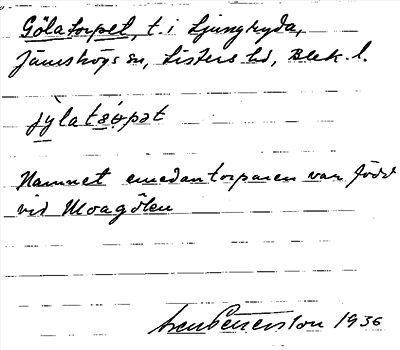 Gölatorpet, t. i Ljungryda,
Jämshögs sn, Listers hd, Blek. l.
jylatɔrpət
Namnet emedan torparen var född
vid Moagölen
Petersson 1936